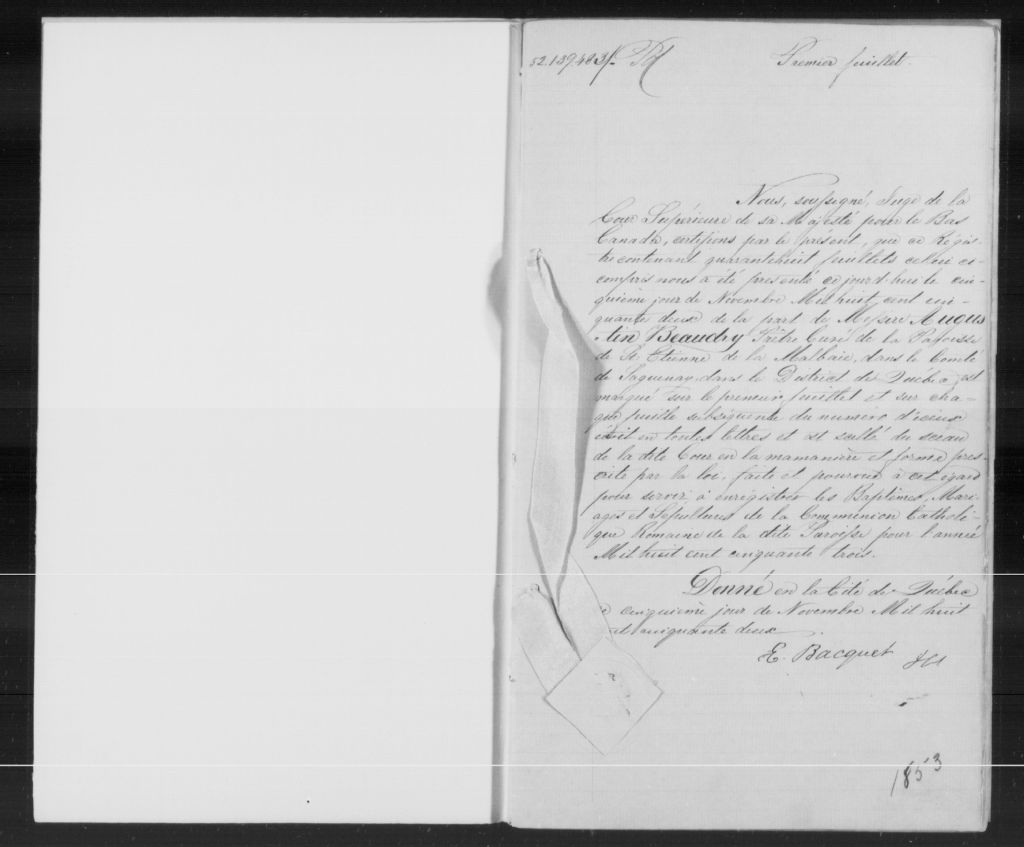 52.139.483/.
Premier feuillet.
Nous, soussigné, Juge de la
Cour Supérieure de sa Majesté pour le Bas
Canada, certifions par le présent, que ce Régis-
tre contenant quarantehuit feuillets celui ci
compris nous a été presenté ce jourd'hui le cin-
quieme jour de Novembre Mil huit cent cin-
quante deux de la part de Messire Augus
tin Beaudry Prêtre Curé de la Paroisse
de St Etienne de la Malbaie, dans le Comté
de Saguenay, dans le District de Québec, est
marqué sur le premier feuillet et sur cha-
que feuille subséquente du numéro d'iceux
écrit en toutes lettres et est scellé du sceau
de la dite Cour en la mamanière et forme pres-
crite par la loi, faite et pourvue à cet égard
pour servir à enregistrer les Baptêmes, Mari-
ages et Sépultures de la Communion Catholi-
que Romaine de la dite Paroisse pour l'année
Mil huit cent cinquante trois.
Donné en la Cité de Québec
e cinquieme jour de Novembre Mil huit
cinquante deux
E. Bacquet JCS
1853